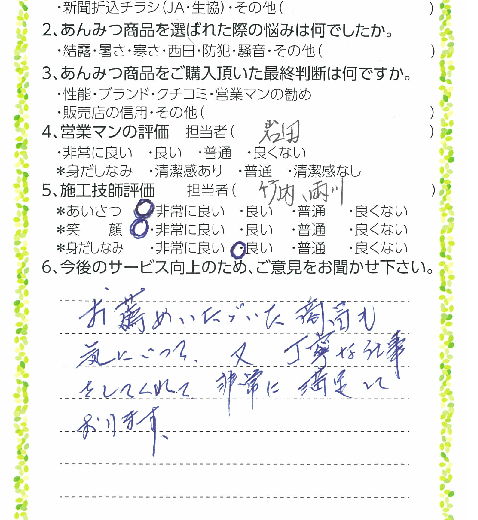 ・新聞折込チラシ(JA・生協)・その他(　　　)
2、あんみつ商品を選ばれた際の悩みは何でしたか。
・結露・暑さ・寒さ・西日・防犯・騒音・その他(　　　)
3、あんみつ商品をご購入頂いた最終判断は何ですか。
・性能・ブランド・クチコミ・営業マンの勧め
・販売店の信用・その他(　　　)
4、営業マンの評価　担当者(　岩田　)
・非常に良い　・良い　・普通　・良くない
*身だしなみ　・清潔感あり　・普通　・清潔感なし
5、施工技師評価　担当者(　竹内、雨川　)
*あいさつ　・非常に良い　・良い　・普通　・良くない
*笑　顔　・非常に良い　・良い　・普通　・良くない
*身だしなみ　・非常に良い　・良い　・普通　・良くない
6、今後のサービス向上のため、ご意見をお聞かせ下さい。
お薦めいただいた商品も
気に入って、又　丁寧な仕事
をしてくれて　非常に満足して
おります、